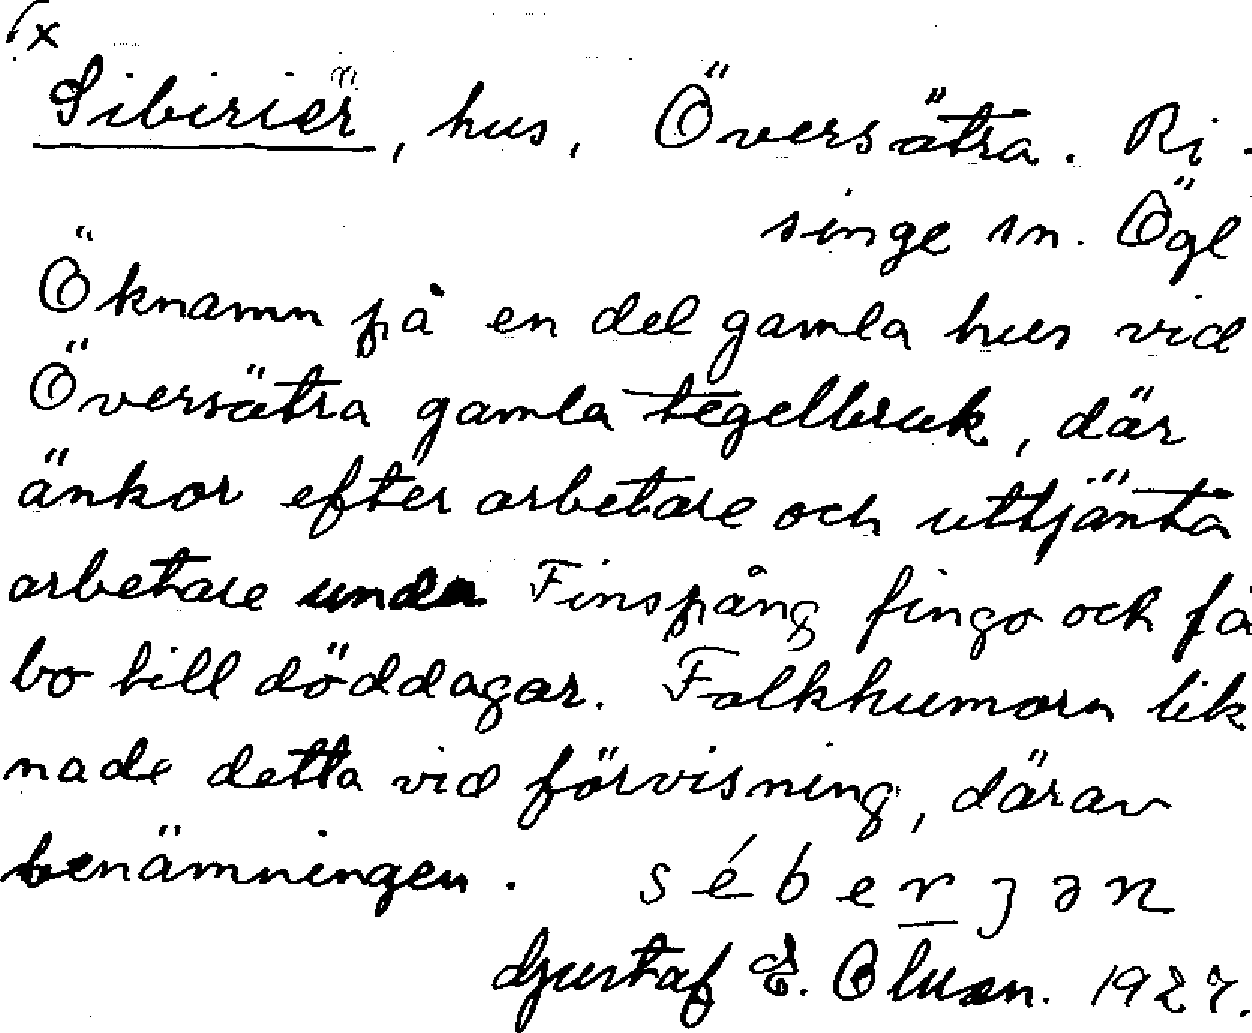 x
Sibirien, hus, Översätra. Ri-
singe sn. Ögl
Öknamn på en del gamla hus vid
Översätra gamla tegelbruk, där
änkor efter arbetare och uttjänta
arbetare under Finspång fingo och få
bo till döddagar. Folkhumorn lik
nade detta vid förvisning, därav
benämningen. séberȷən
Gustaf E. Olsson. 1927.